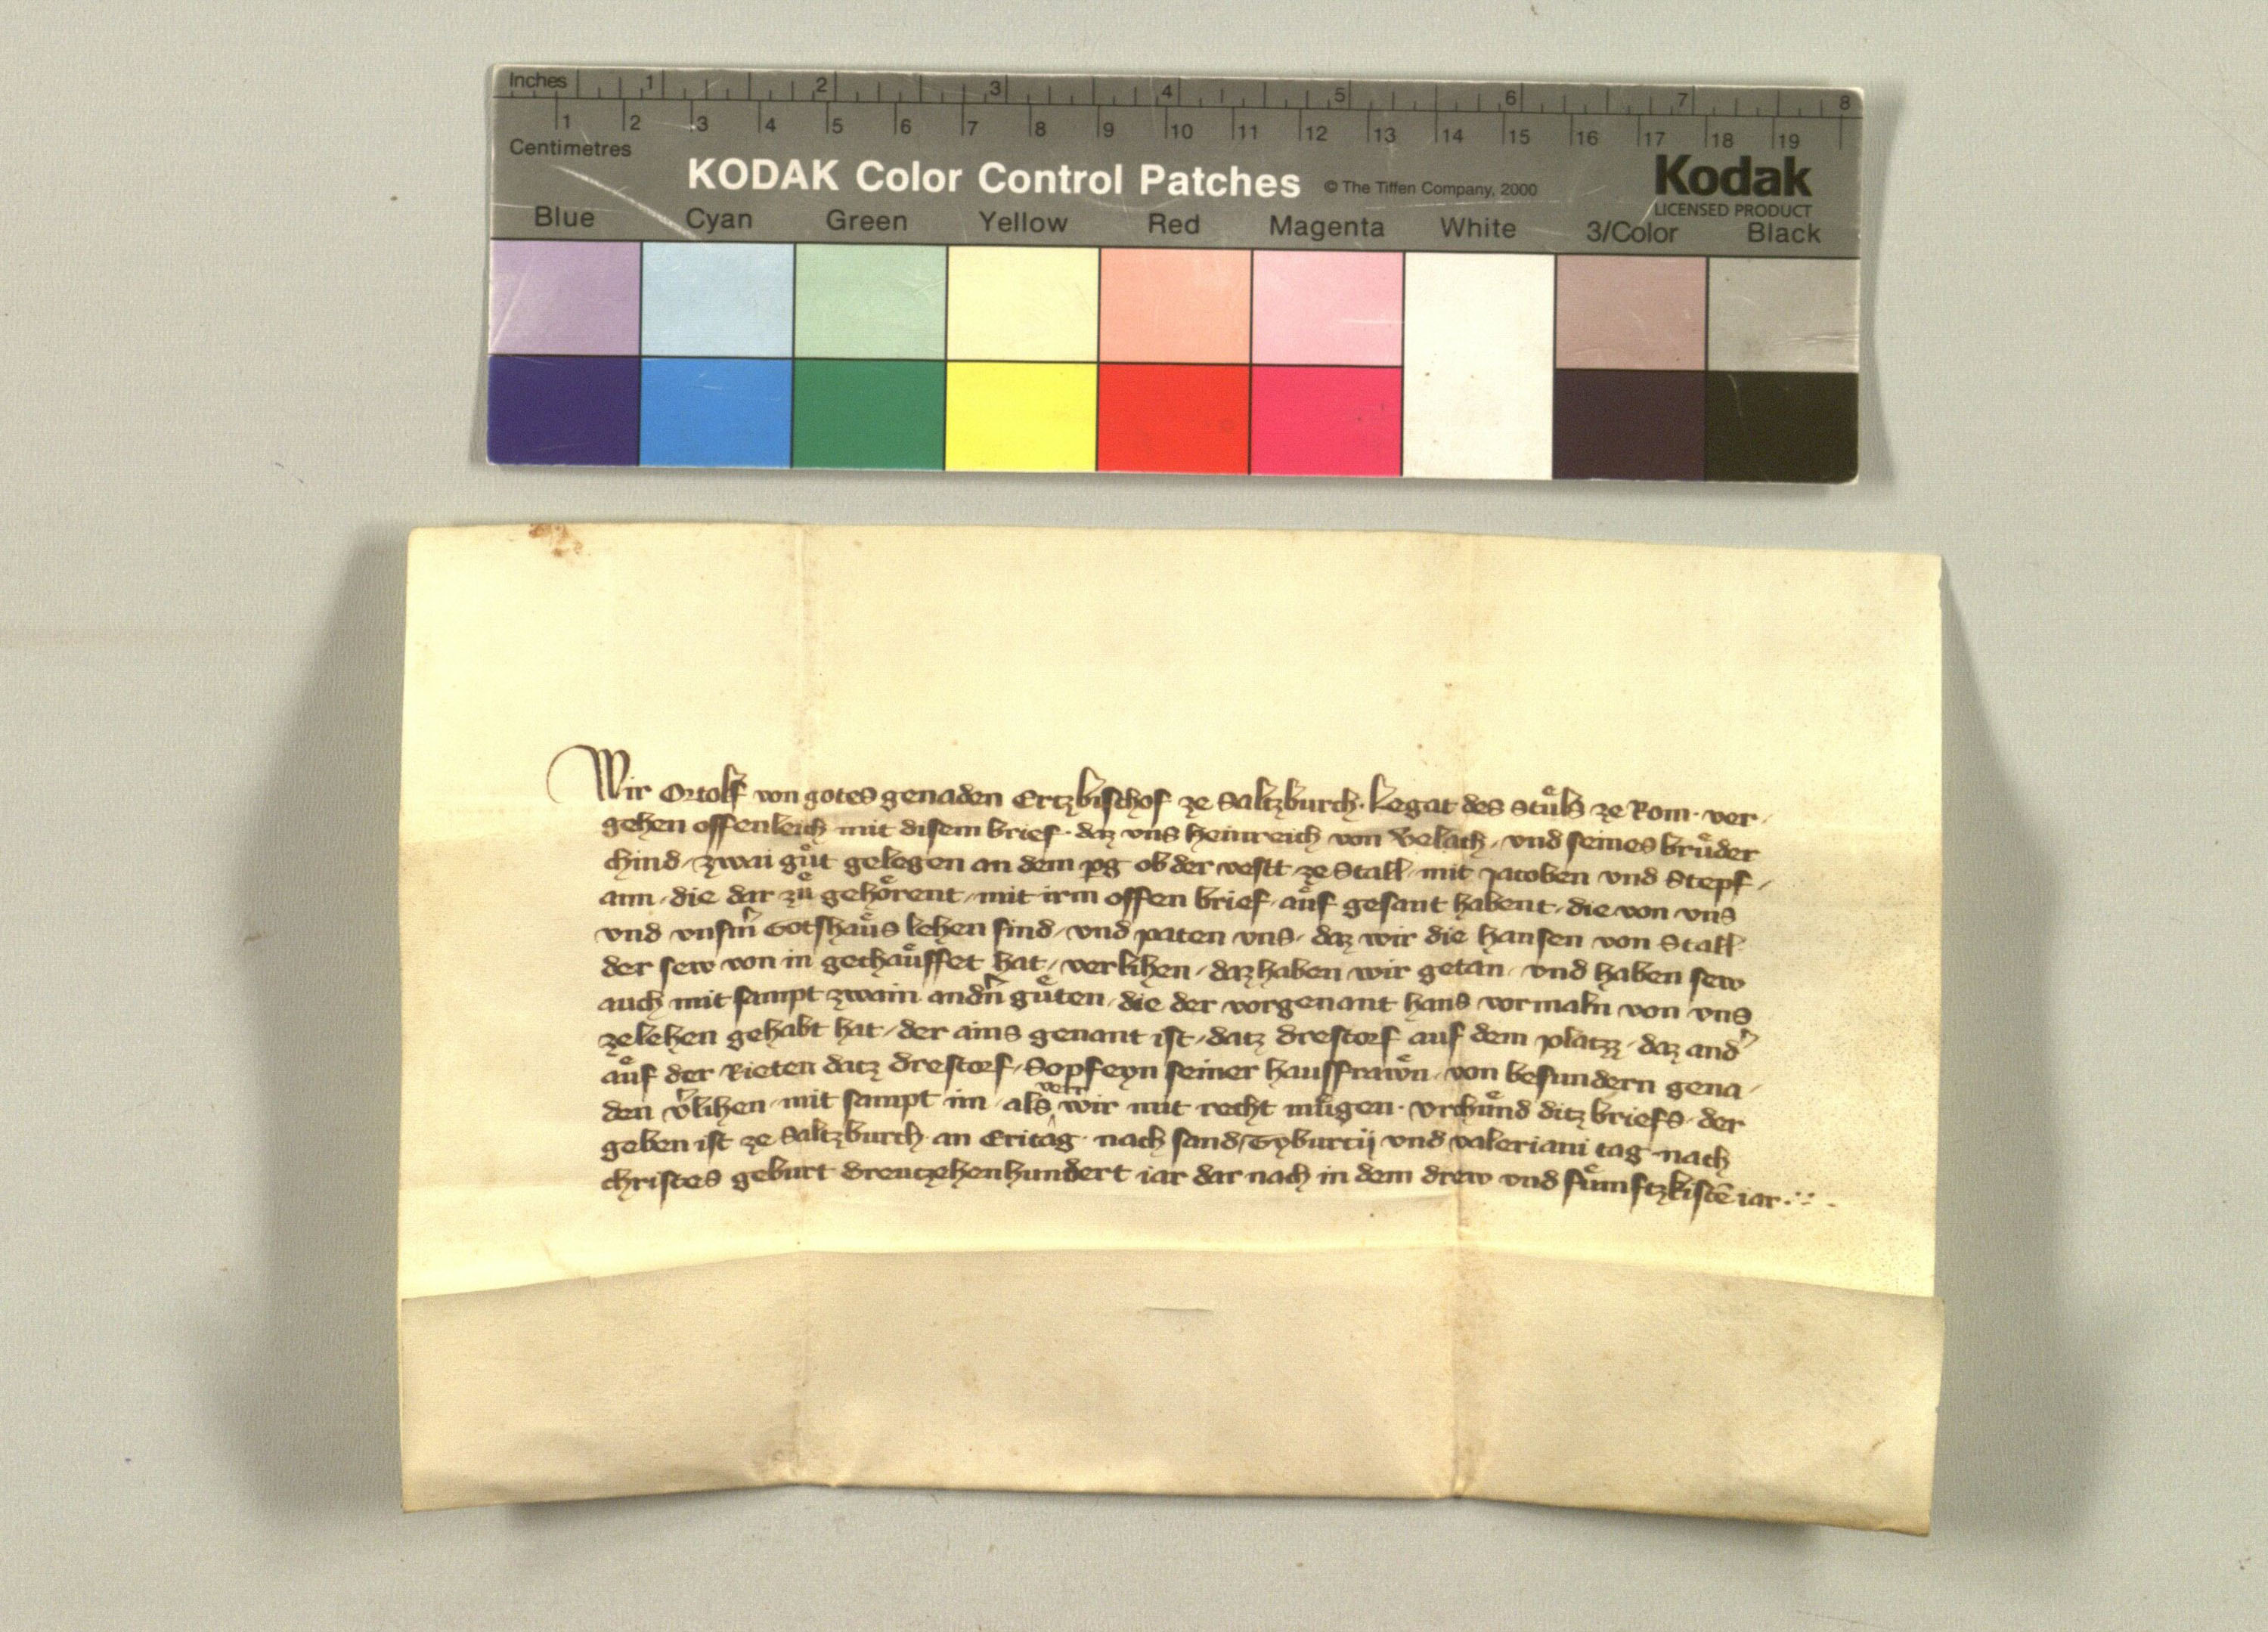 Inches 1 2 3 4 5 6 7 8
1 2 3 4 5 6 7 8 9 10 11 12 13 14 15 16 17 18 19
Centimetres
KODAK Color Control Patches © The Tiffen Company, 2000 Kodak
LICENSED PRODUCT
Blue Cyan Green Yellow Red Magenta White 3/Color Black
Wir Ortolf von gotes genaden Ertzbischof ze Saltzburch. Legat des Stůls ze Rom. ver/
gehen offenleich mit disem brief. daz vns Heinreich von Velach, vnd seines brůder
chind, zwai gůt gelegen an dem pg ob der vestt ze Stall, mit Jacoben vnd Stepf/
ann, die dar zů gehörent, mit irm offen brief, auf gesant habent, die von vns
vnd vnsm̄ Gotshaus lehen sind, vnd paten vns, daz wir die Hansen von Stall
der sew von in gechauffet hat, verlihen, daz haben wir getan, vnd haben sew
auch mit sampt zwain andn̄ gůten, die der vorgenant Hans vormaln von vns
ze lehen gehabt hat, der ains genant ist, datz Drestorf auf dem platzz, daz and̄
auf der Rieten datz Drestorf, Sopfeyn seiner hausfrawn, von besundern gena/
den v̄lihen, mit sampt im, als verr wir mit recht mügen. Vrchünd ditz briefs, der
geben ist ze Saltzburch. an Eritag. nach sand Tyburcij vnd Valeriani tag nach
christes geburt Dreutzehenhundert iar dar nach in dem drew vnd fümftzkistē iar.